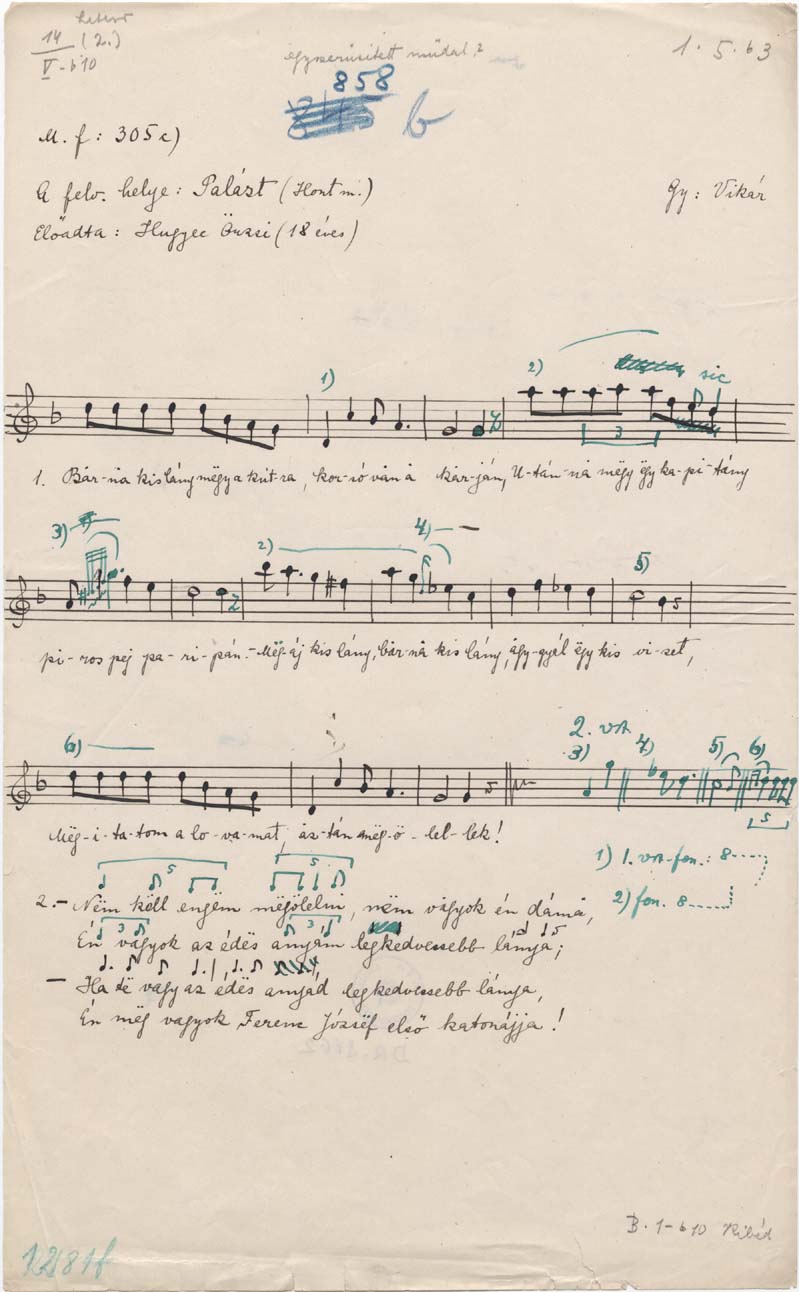 14 (2.)
V-b10
egyszerüsitett müdal?
1.5.b3
858
b
M. f: 305c)
A felv. helye: Palást (Hont m.)
Gy: Vikár
Előadta: Hugyec Önzsi (18 éves)
1)
2)
sic
3
1. Bár-na kislány mëgy a kút-ra, kor-só van a kar-ján, U-tán-na mëgy ëgy ka-pi-tány
3)
2)
4)
5)
pi-ros pej pa-ri-pán.- Mëg-áj kis lány, bar-na kis lány, ágy-gyál ëgy kis vi-zet,
6)
2. vsz.
3) 4) 5) 6)
5
Mëg-i-ta-tom a lo-va-mat, az-tán mëg-ö-lel-lek!
1) 1. vsz-fon.: 8
5 5
2.- Nëm këll engëm mëgölelni, nëm vagyok én dáma,
2) fon. 8
3 3
Én vagyok az édës anyám legkedvesebb lánya;
- Ha të vagy az édës anyád legkedvesebb lánya,
Én mëg vagyok Ferenc Józsëf első katonájja!
B. 1-b10 Kibéd